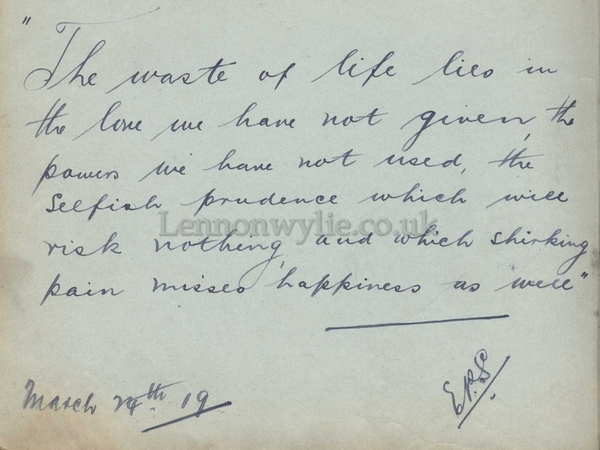 "The waste of life lies in
the love we have not given, the
powers we have not used, the
Selfish prudence which will
Lennonwylie.co.uk
risk nothing, and which shirking
pain misses happiness as well"
March 24th. 19